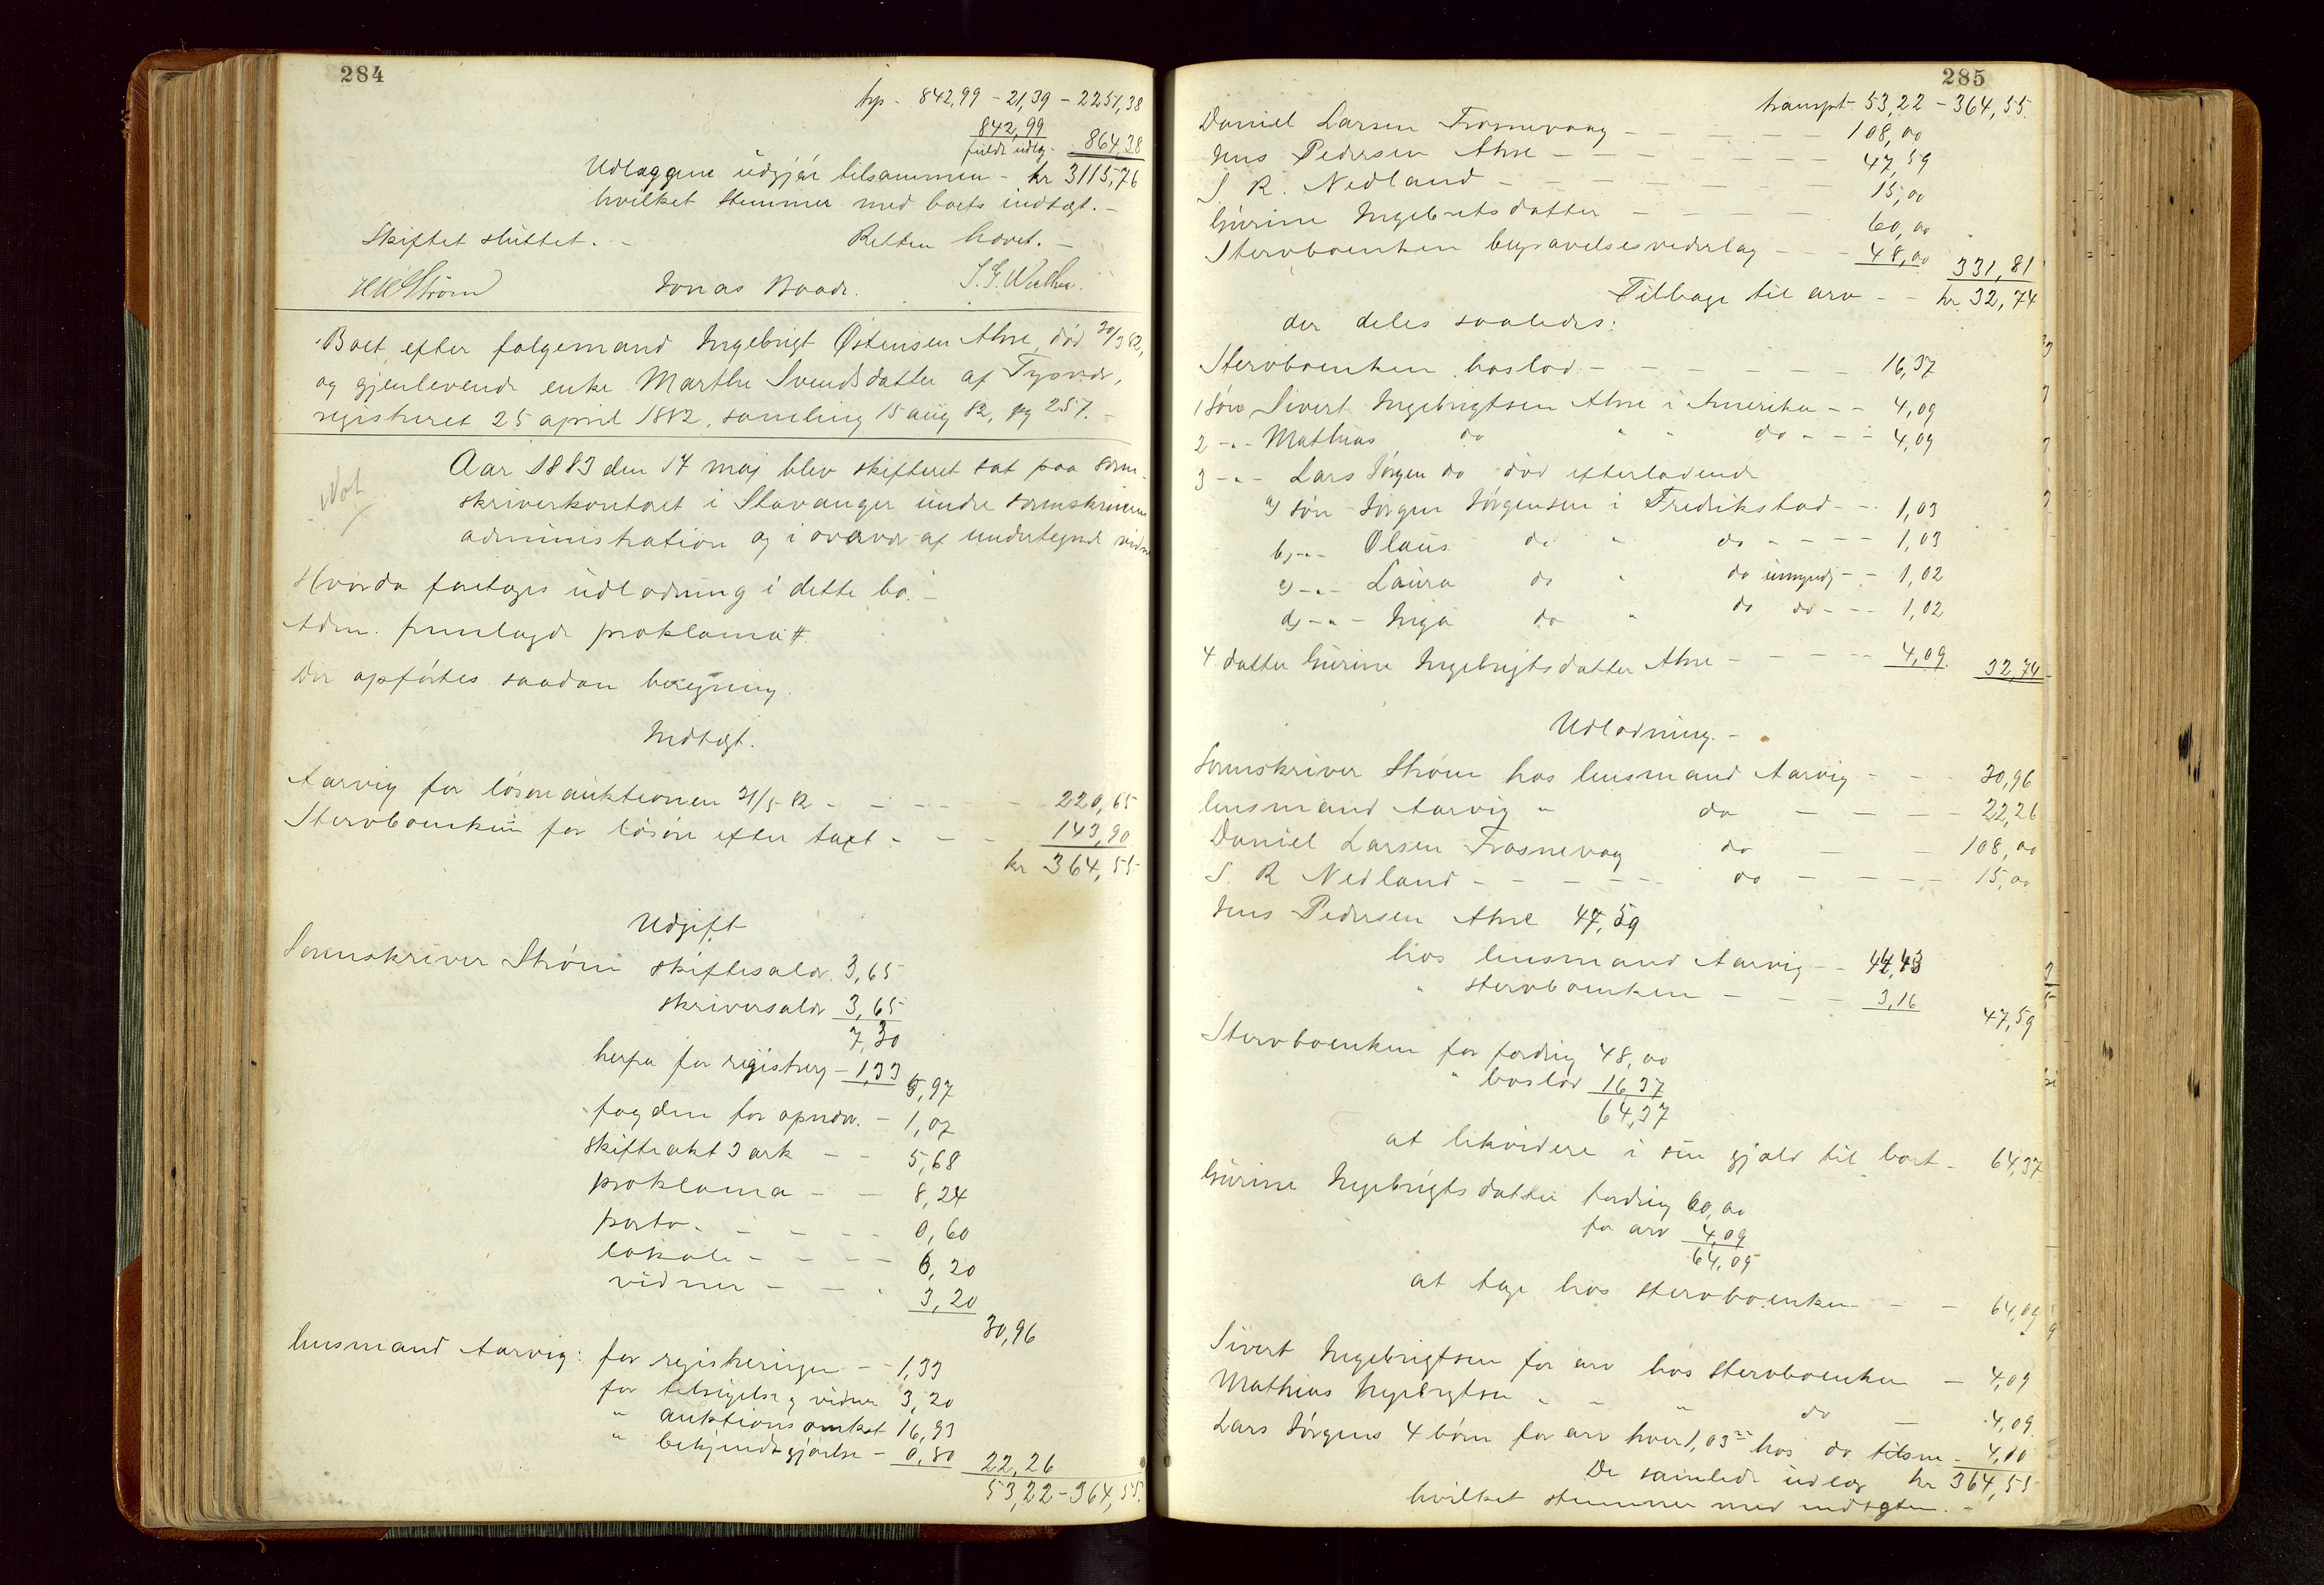 284
trp - 842,99 - 21,39 - 2251,38
842,99
fulde udlæg - 864,38
Udlæggene udgjør tilsammen - kr 3115,76
hvilket stemmer med boets indtægt. -
Skiftet sluttet. - Retten hævet. -
HWStrøm Jonas Boade.
Boet efter folgemand Ingebrigt Østensen Ahre, død 30/3 82,
og gjenlevende enke Marthe Svendsdatter af Tysvær,
registreret 25 april 1882, samling 15 aug 82, pg 257. -
Aar 1883 den 17 maj blev skifteret sat paa soren-
skriverkontoret i Stavanger under sorenskriverens
administration og i overvær af undertegnede vidner
Hvorda foretoges udlodning i dette bo. -
Adm. fremlagde proklama #.
Der opførtes saadan beregning.
Indtægt.
Aarvig for løsøreauktionen 31/5 82 - - - - 220,65
Stervboenken for løsøre efter taxt - - - 143,90
kr 364,55
Udgift
Sorenskriver Strøm skiftesalær 3,65
skriversalær 3,65
7,30
herfra for registrerg - 1,33 5,97
fogden for opnævn. - 1,07
skifteakt 3 ark - - 5,68
proklama - - 8,24
porto - - - - 0,60
lokale - - - - 6,20
vidner - - - 3,20
30,96
lensmand Aarvig: for registreringen - - 1,33
for tilsigelse og vidner 3,20
" auktionsomkost 16,93
" bekjendtgjørelse - 0,80 22,26
53,22 - 364,55.
285
transpt. 53,22 - 364,55.
Daniel Larsen Frosnevaag - - - - - 108,00
Jens Pedersen Ahre - - - - - - 47,59
S. R. Nedland - - - - - - - 15,00
Gurine Ingebretsdatter - - - - 60,00
Stervboenken begravelsesvederlag - - - 48,00 331,81
Tilbage til arv - - kr. 32,74
der deles saaledes:
Stervboenken boslod - - - - - - 16,37
1 søn Sivert Ingebrigtsen Ahre i Amerika - - 4,09
2 -"- Mathias do " " do - - - 4,09
3 -"- Lars Jørgen do død efterladende
a) søn Jørgen Jørgensen i Fredrikstad - - 1,03
b) -"- Olaus do " do - - - - 1,03
c) -"- Laura do " do umyndg - - 1,02
d) -"- Inga do " do do - - - 1,02
4. datter Gurine Ingebrigtsdatter Ahre - - - - - 4,09. 32,74
Udlodning. -
Sorenskriver Strøm hos lensmand Aarvig - - 30,96
lensmand Aarvig " do - - - - 22,26
Daniel Larsen Frosnevag do - - 108,00
S. R Nedland - - - - - - do - - - - 15,00
Jens Pedersen Ahre 47,59
hos lensmand Aarvig - - 44,43
" stervboenken - - - 3,16
47,59
Stervboenken for fordrig 48,00
" boslod 16,37
64,37
at likvidere i sin gjæld til boet - 64,37
Gurine Ingebrigtsdatter fordrig 60,00
for arv 4,09
64,09
at tage hos stervboenken - - 64,09
Sivert Ingebrigtsen for arv hos stervboenken - 4,09
Mathias Ingebrigtsen " " " do - 4,09.
Lars Jørgens 4 børn for arv hver 1,03 hos do tilsm - 4,10
De samlede udlæg kr 364,55
hvilket stemmer med indtægten. -